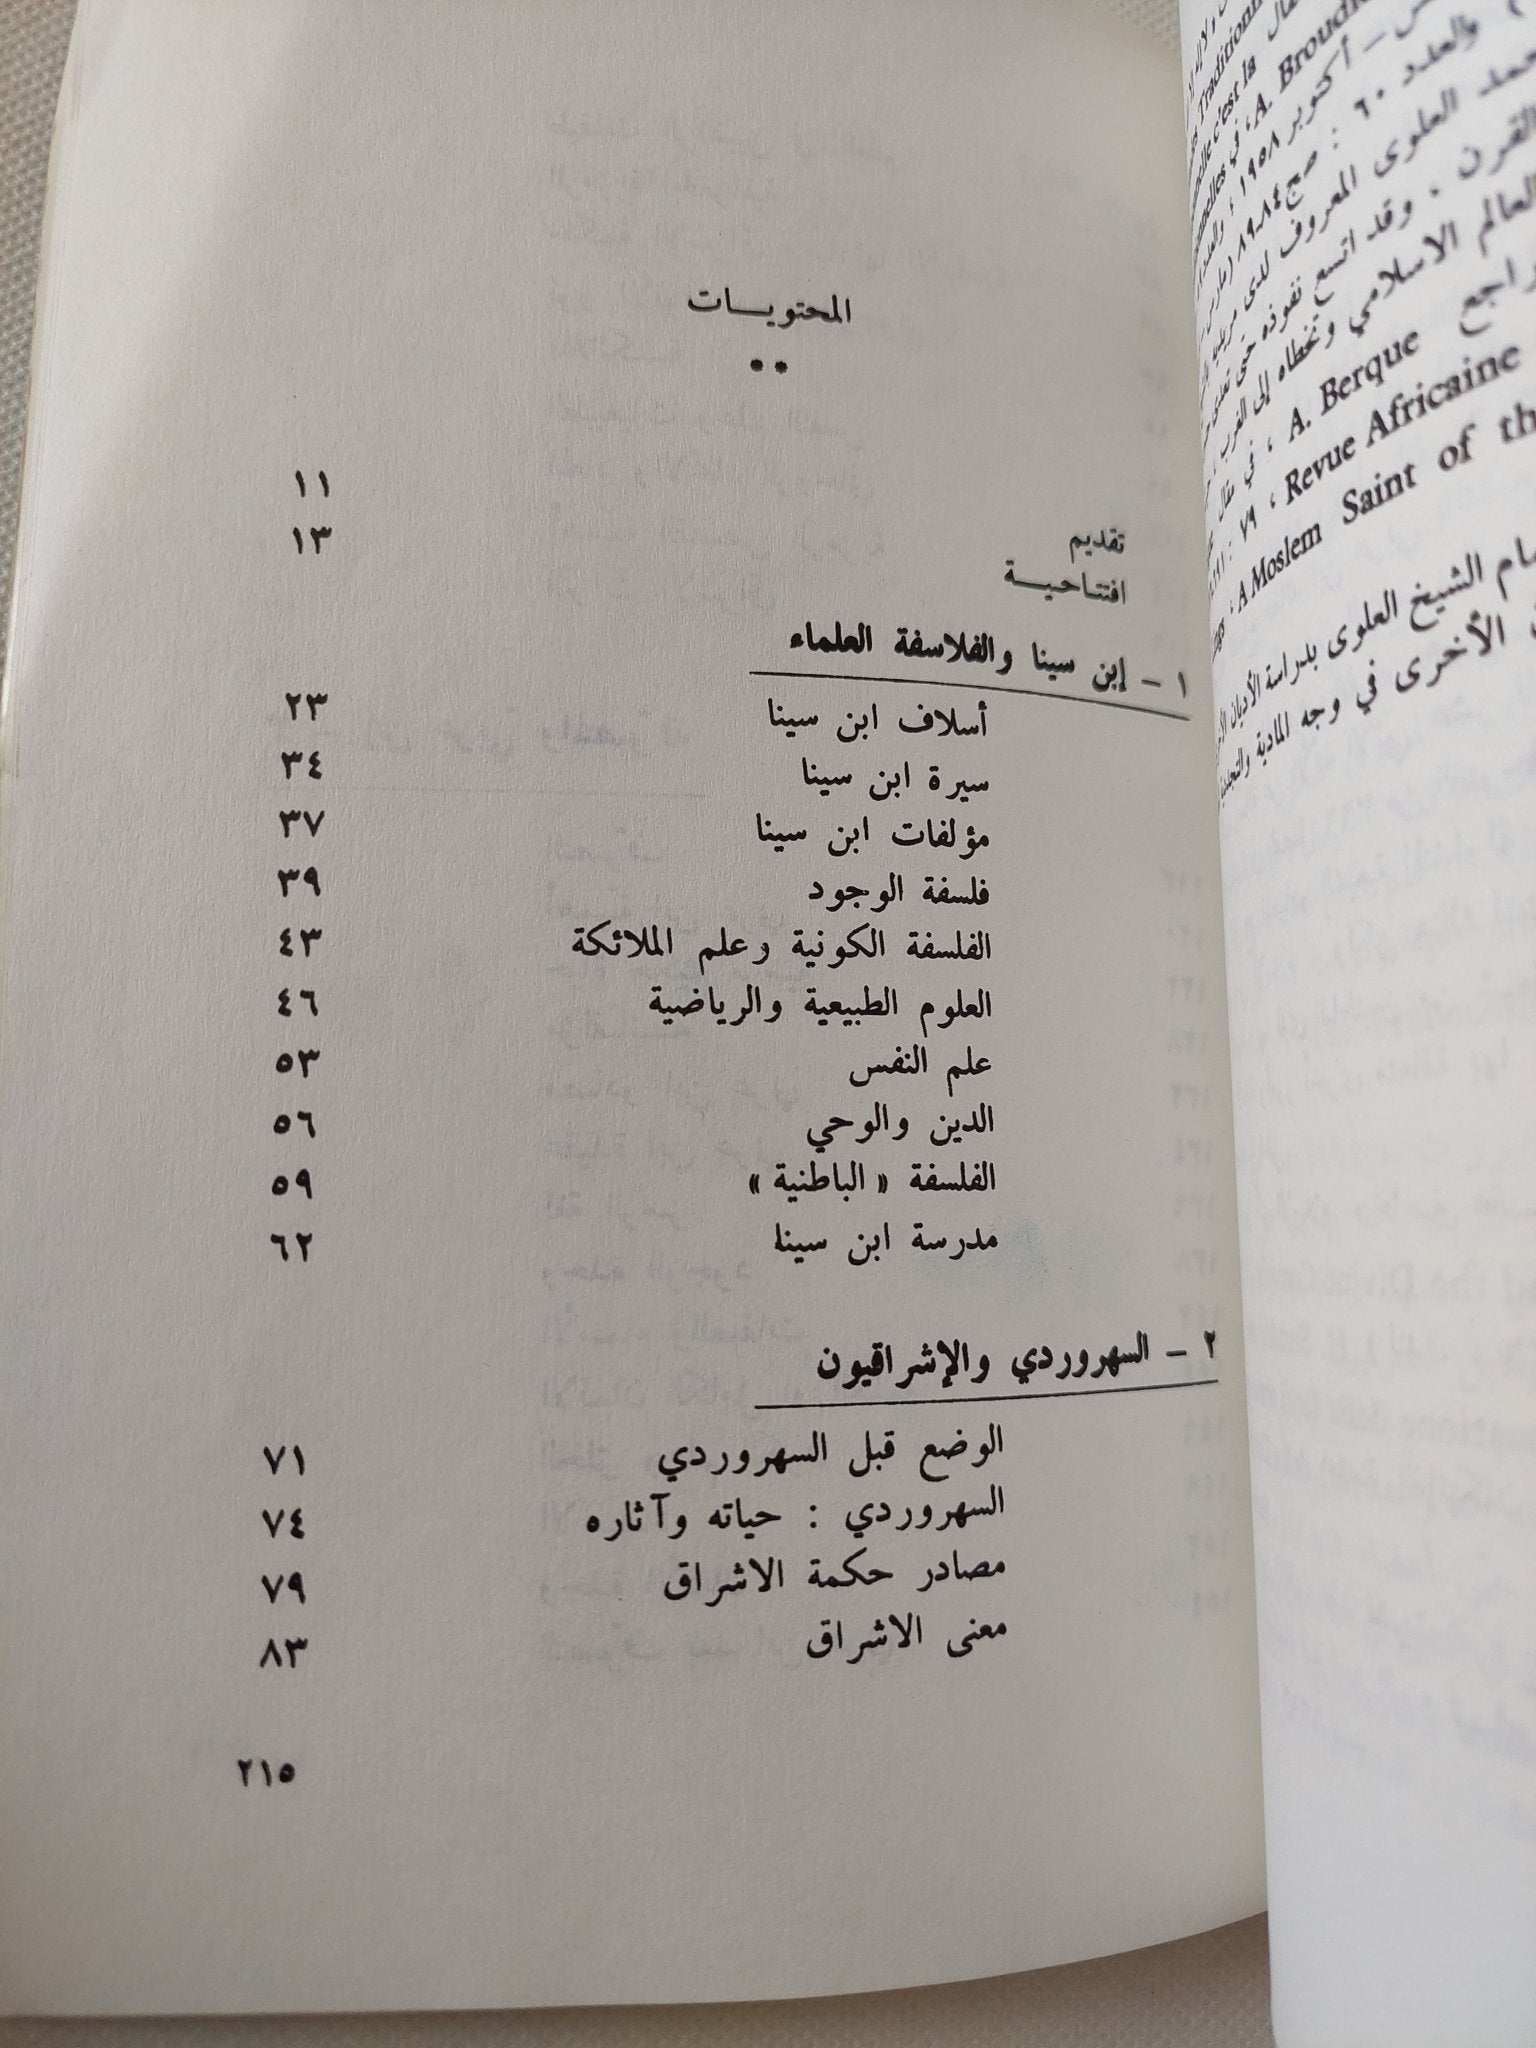 المحتويات
تقديم ١١
افتتاحية ١٣
١ - إبن سينا والفلاسفة العلماء
أسلاف ابن سينا ٢٣
سيرة ابن سينا ٣٤
مؤلفات ابن سينا ٣٧
فلسفة الوجود ٣٩
الفلسفة الكونية وعلم الملائكة ٤٣
العلوم الطبيعية والرياضية ٤٦
علم النفس ٥٣
الدين والوحي ٥٦
الفلسفة « الباطنية » ٥٩
مدرسة ابن سينا ٦٢
٢ - السهروردي والإشراقيون
الوضع قبل السهروردي ٧١
السهروردي : حياته وآثاره ٧٤
مصادر حكمة الاشراق ٧٩
معنى الاشراق ٨٣
٢١٥
A. Broudi
أكتوبر ١٩٥٨ ،
والعدد ٦٠ : ص ٨٤ـ٨٩
العلوى المعروف لدى
القرن . وقد اتسع نفوذه حتى
العالم الاسلامي وتخطاه إلى الغرب
راجع A. Berque ، في مقال
٧٩ ، Revue Africaine
A Moslem Saint of
الشيخ العلوى بدراسة الأديان
الأخرى في وجه المادية